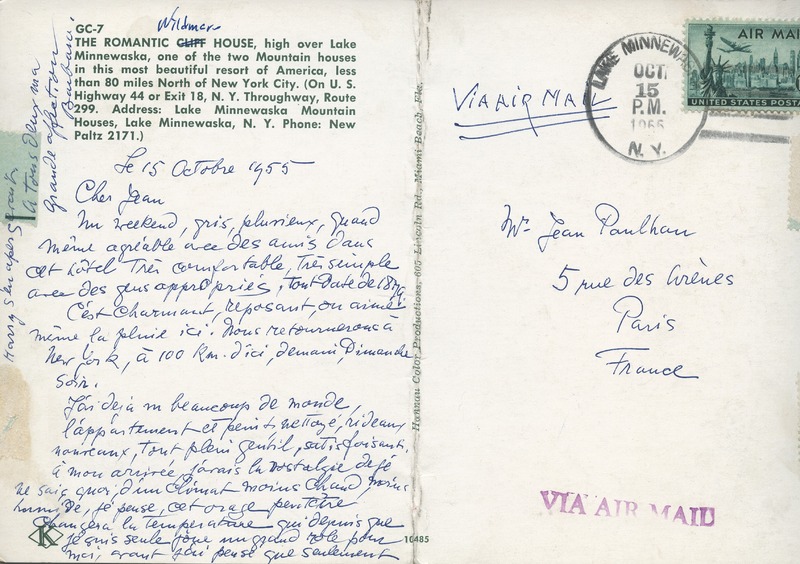 GC-7
Wildmere
THE ROMANTIC CLIFF HOUSE, high over Lake
Minnewaska, one of the two Mountain houses
in this most beautiful resort of America, less
than 80 miles North of New York City. (On U. S.
Highway 44 or Exit 18, N. Y. Throughway, Route
299. Address: Lake Minnewaska Mountain
Houses, Lake Minnewaska, N. Y. Phone: New
Paltz 2171.)
Le 15 Octobre 1955
Cher Jean
Un weekend, gris, pluvieux, quand
même agréable avec des amis dans
cet hôtel Très comfortable, Très simple
avec des gens appropriés, tout date de 1879.
C'est Charmant, reposant, on aime
même la pluie ici. Nous retournerons à
New York, à 100 Km. d'ici, demain, Dimanche
soir.
J'ai déjà vu beaucoup de monde,
l'appartement et peint, nettoyé, rideaux
nouveaux, tout plein gentil, satisfaisant.
à mon arrivée, j'avais la nostalgie de je
ne sais quoi, d'un Climat moins chaud, moins
humide, je pense, cet orage peut être
Changera la température qui depuis que
je suis seule joue un grand rôle pour
moi, avant j'ai pensé que seulement
Harry s'en aperçevait
à tous deux ma
grande affection
Barbara
Hannau Color Productions, 605 Lincoln Rd., Miami Beach, Fla.
K
10485
VIA AIR MAIL
LAKE MINNEWA
OCT
15
P.M.
1955
N. Y.
AIR MAIL
UNITED STATES POSTA
Mr Jean Paulhan
5 rue des Arènes
Paris
France
VIA AIR MAIL